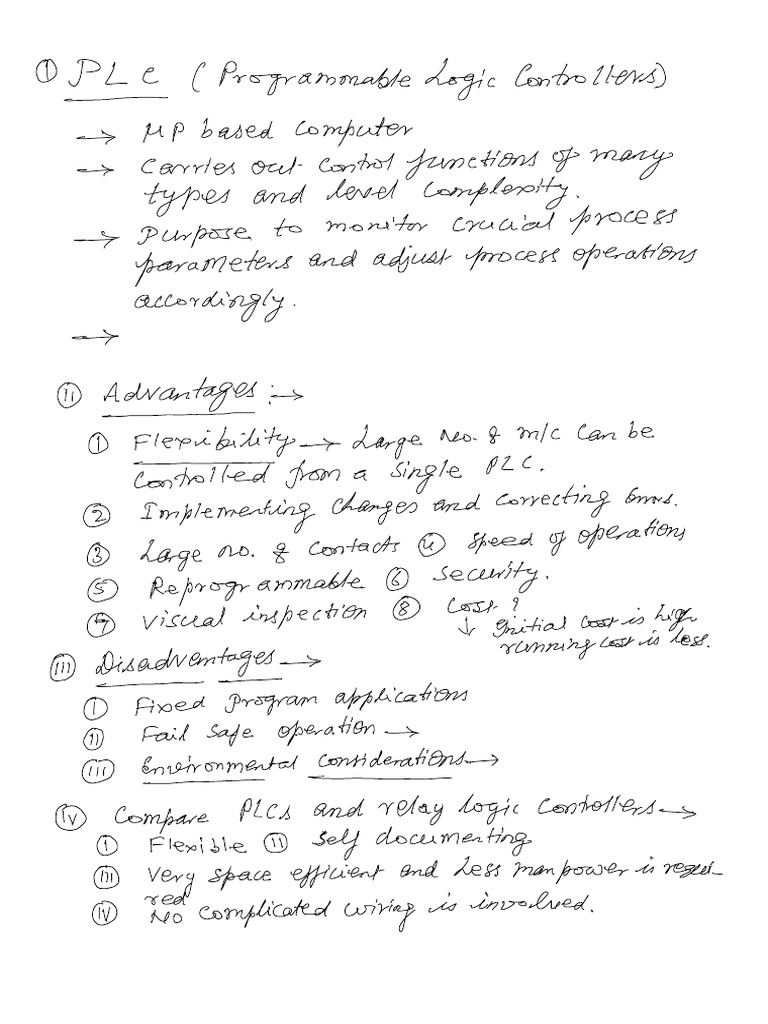 ① PLC (Programmable Logic Controllers)
→ MP based computer
→ Carries out control functions of many
types and level complexity.
→ Purpose to monitor crucial process
parameters and adjust process operations
accordingly.
→
ⅱ Advantages :→
① Flexibility → Large No. of m/c can be
controlled from a single PLC.
② Implementing changes and correcting Errors.
③ Large no. of contacts ④ speed of operations
⑤ Reprogrammable ⑥ security.
⑦ visual inspection ⑧ Cost ?
↓ Initial cost is high
running cost is less.
ⅲ Disadventages →
ⅰ Fixed program applications
ⅱ Fail safe operation →
ⅲ Environmental considerations →
ⅳ Compare PLCs and relay logic controllers →
ⅰ Flexible ⅱ self documenting
ⅲ Very space efficient and Less manpower is requi-
red
ⅳ No complicated wiring is involved.